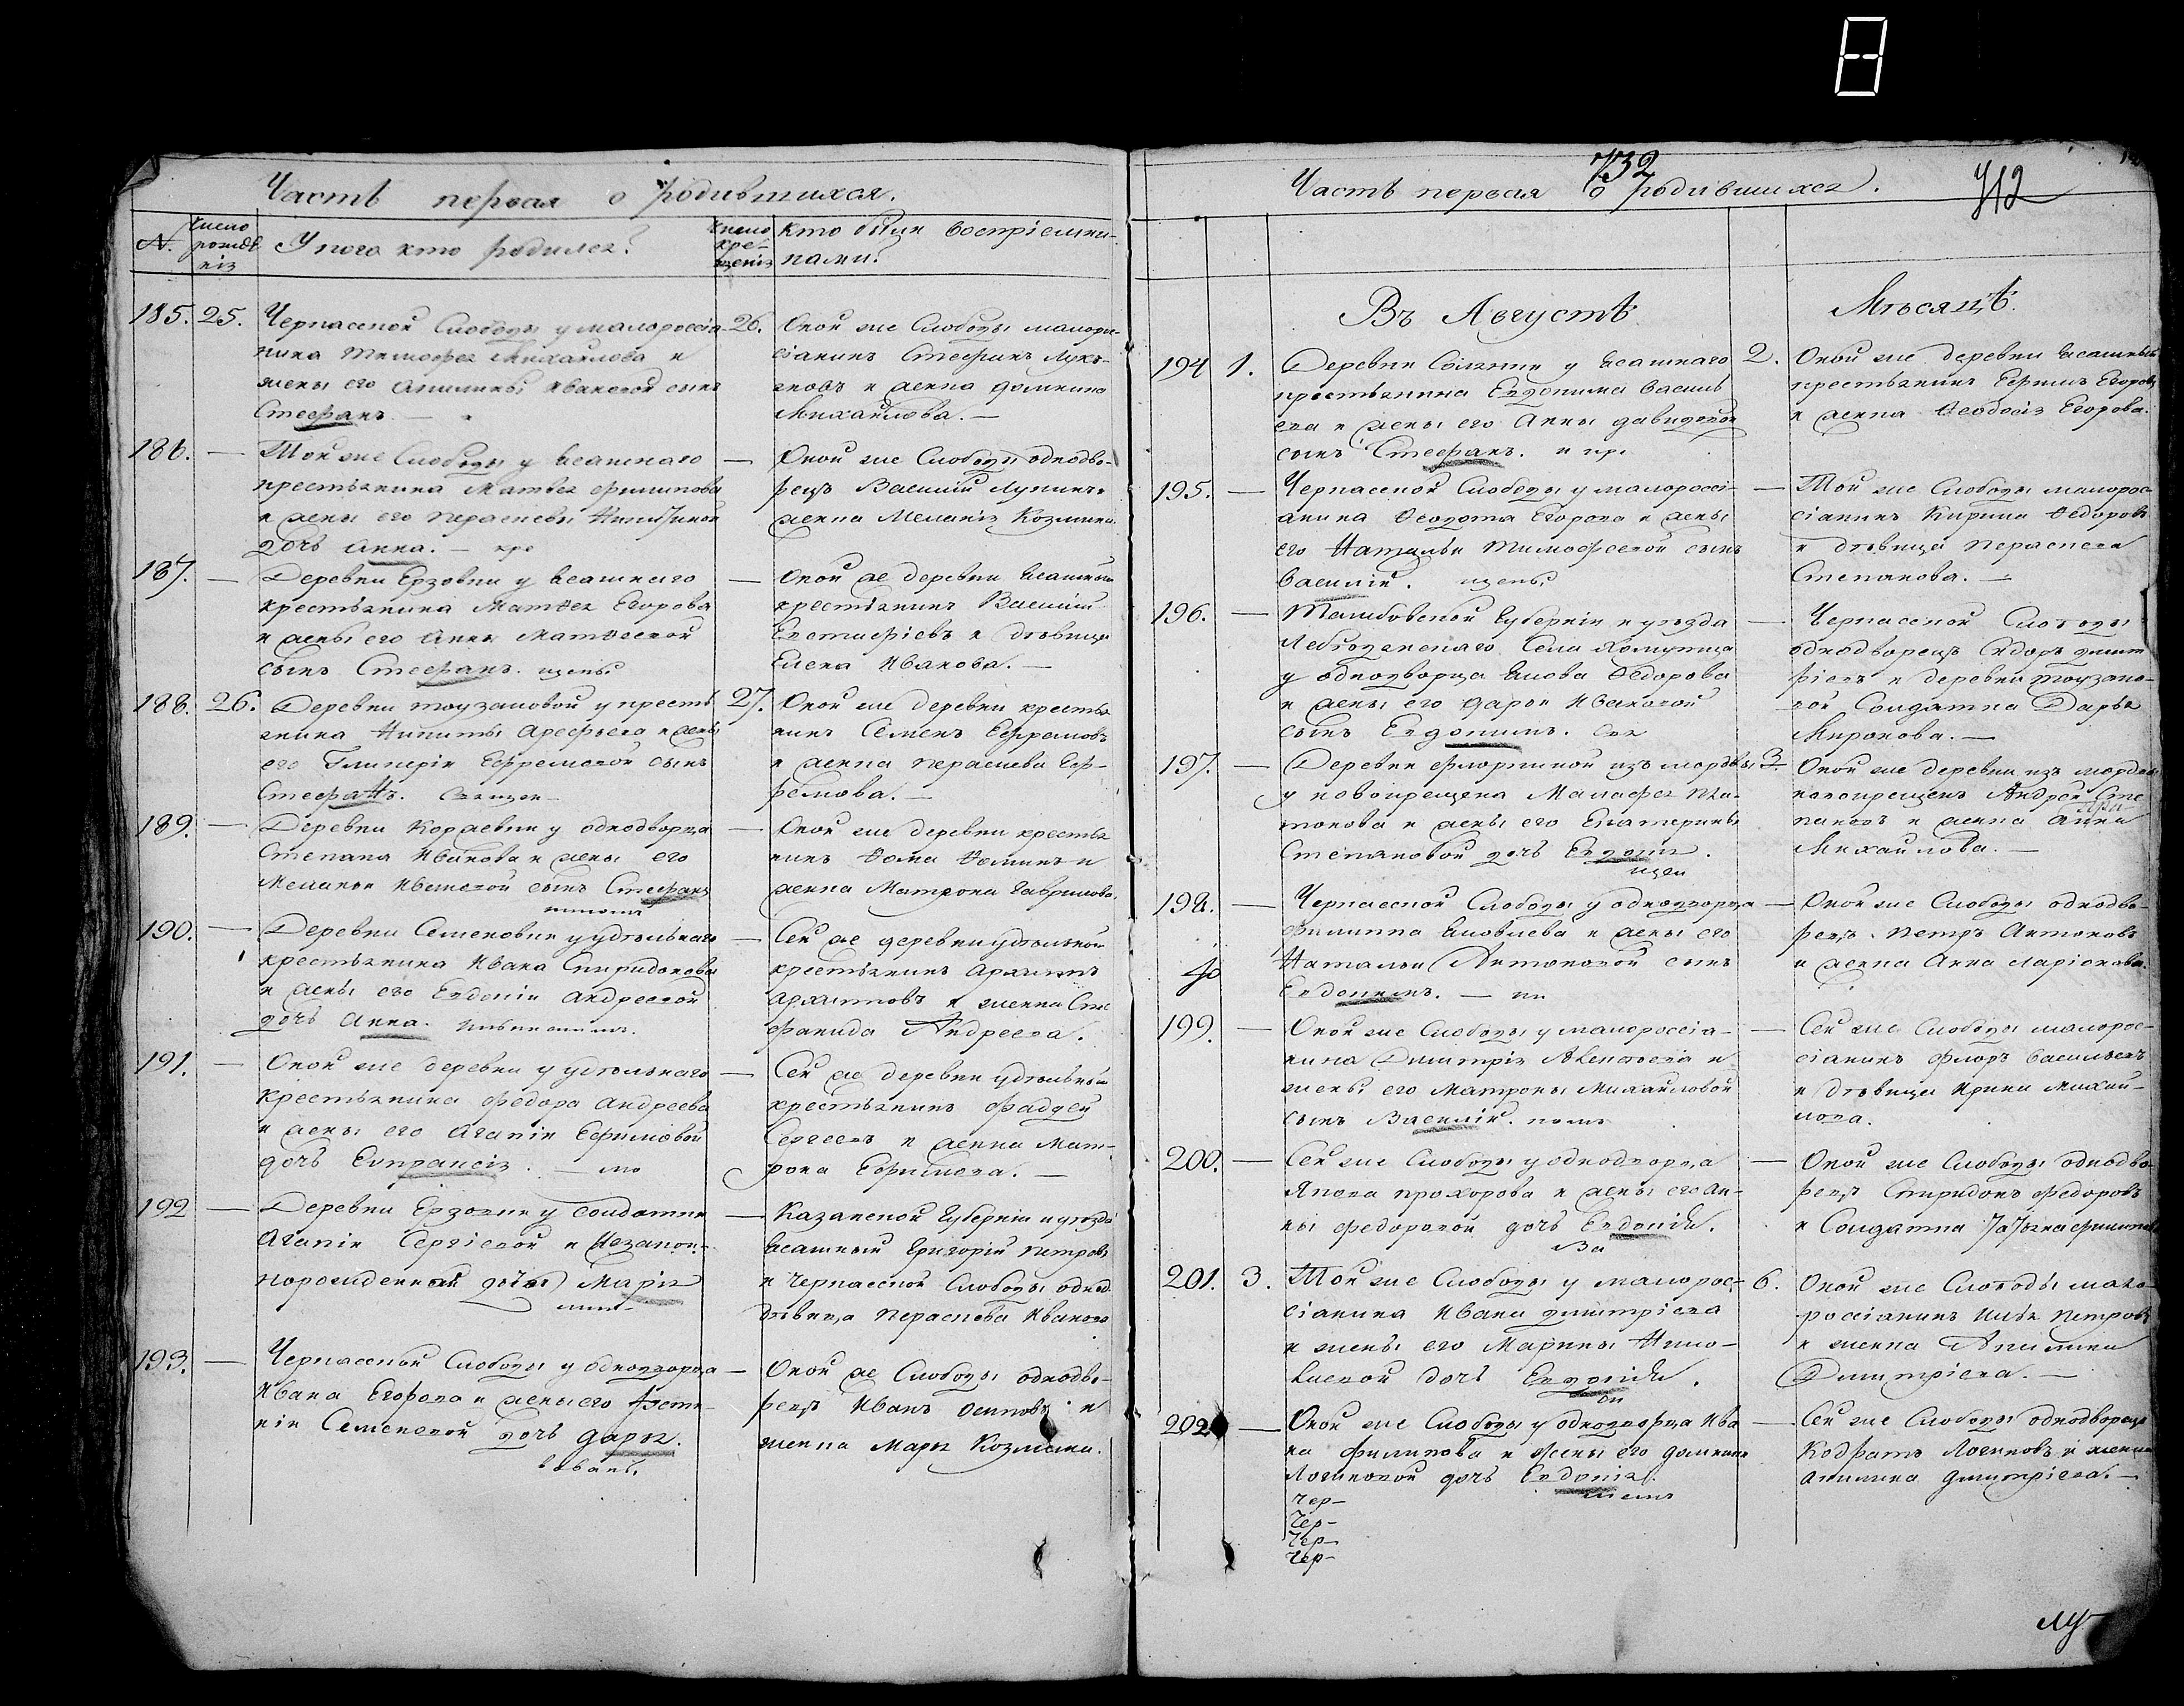 Часть первая о родившихся.
N. число рождѣнія
У кого кто родился?
число крещенія
Кто были воспріемни-
ками?
185. 25. Черкасской Слободы у малороссія-
нина Тимофея Михайлова и
жены его Акилины Ивановой сынъ
Стефанъ. —
26. Оной же Слободы малорос-
сіянинъ Стефанъ Лукь-
яновъ и женка Домнина
Михайлова. —
186. — Той же Слободы у ясашнаго
крестьянина Матвея Филипова
и жены его Параскевы Никитиной
дочь Анна. — кре
— Оной же Слободы однодво-
рецъ Василий
женка Меланія Козмина.
187. — Деревни Ерзовки у ясашнаго
крестьянина Матвея Егорова
и жены его Анны Матвеевой
сынъ Стефанъ. щены
— Оной же деревни ясашной
крестьянинъ Василий
Евстафіевъ и дѣвица
Елена Иванова. —
188. 26. Деревни у кресть
янина Никиты Арефьева и жены
его Гликеріи Ефремовой сынъ
Стефанъ. Священ-
27. Оной же деревни крестья
нинъ Семенъ Ефремовъ
и женка Параскева Еф-
ремова. —
189. — Деревни Кораевки у однодворца
Степана Иванова и жены его
Меланьи Ивановой сынъ Стефанъ
— Оной же деревни крестья
нинъ Фома Фоминъ и
женка Матрона Гаврилова.
190. — Деревни Семеновки у удѣльнаго
крестьянина Ивана Спиридонова
и жены его Евдокіи Андреевой
дочь Анна.
— Сей же деревни удѣльной
крестьянинъ Архиппъ
Архиповъ и женка Сте
фанида Андреева.
191. — Оной же деревни у удѣльнаго
крестьянина Федора Андреева
и жены его Агапіи Ефимовой
дочь Евпраксія. —
— Сей же деревни удѣльной
крестьянинъ Фаддей
Сергеевъ и женка Мат-
рона Ефимова. —
192 — Деревни Ерзовки у солдатки
Агапіи Сергіевой и незакон-
норожденная дочь Марія
— Казанской Губерніи и уѣзда
ясашный Григорій Петровъ
и Черкасской Слободы однод.
дѣвица Параскева Иванова
193. — Черкасской Слободы у однодворца
Ивана Егорова и жены его
Семеновой дочь Дарья.
— Оной же Слободы однодво-
рецъ Иванъ Осиповъ и
женка Марья Козмина.
732
Часть первая о родившихся.
412
Въ Августѣ Мѣсяцѣ.
194 1. Деревни у ясашнаго
крестьянина Евдокима Василь
ева и жены его Анны Давидовой
сынъ Стефанъ. и кре
2. Оной же деревни ясашный
крестьянинъ Ефимъ Егоровъ
и женка Феодосія Егорова.
195. — Черкасской Слободы у малороссі-
янина Феодота Егорова и жены
его Натальи Тимофеевой сынъ
Василій. щены
— Той же Слободы малорос-
сіянинъ Кирила Федоровъ
и дѣвица Параскева
Степанова. —
196. — Тамбовской Губерніи и уѣзда
Лебедянскаго Села
у однодворца Якова Федорова
и жены его Дарьи Ивановой
сынъ Евдокимъ. Свя
— Черкасской Слободы
однодворецъ Сидоръ Димит
ріевъ и деревни
вой Солдатка Дарья
Миронова. —
197. — Деревни Флоркиной изъ мордвы
у новокрещена Малафея Пла-
тонова и жены его Екатерины
Степановой дочь Евдокія.
щен
3. Оной же деревни изъ мордвы
новокрещенъ Андрей Сте
пановъ и женка Анна
Михайлова. —
198. — Черкасской Слободы у однодворца
Филиппа Яковлева и жены его
Натальи Антоновой сынъ
Евдокимъ. — ни
— Оной же Слободы однодво-
рецъ Петръ Антоновъ
и женка Анна Ларіонова.
199. — Оной же Слободы у малороссія-
нина Димитрія и
жены его Матроны Михайловой
сынъ Василій.
— Сей же Слободы малорос-
сіянинъ Флоръ Васильевъ
и дѣвица Ирина Михай-
лова.
200. — Сей же Слободы у однодворца
Якова Прохорова и жены его Ан-
ны Федоровой дочь Евдокія.
Ва
— Оной же Слободы однодво-
рецъ Спиридонъ Федоровъ
и Солдатка
201. 3. Той же Слободы у малорос-
сіянина Ивана Димитріева
и жены его Марины Нико-
лаевой дочь Евдокія.
6. Оной же Слободы мало-
россіянинъ Илья Петровъ
и женка Акилина
Димитріева. —
202 — Оной же Слободы у однодворца Ива
на Филипова и жены его Домники
Логиновой дочь Евдокія.
— Сей же Слободы однодворецъ
Кодратъ Логиновъ и женка
Акилина Димитріева. —
чер-
чер-
чер-
чер-